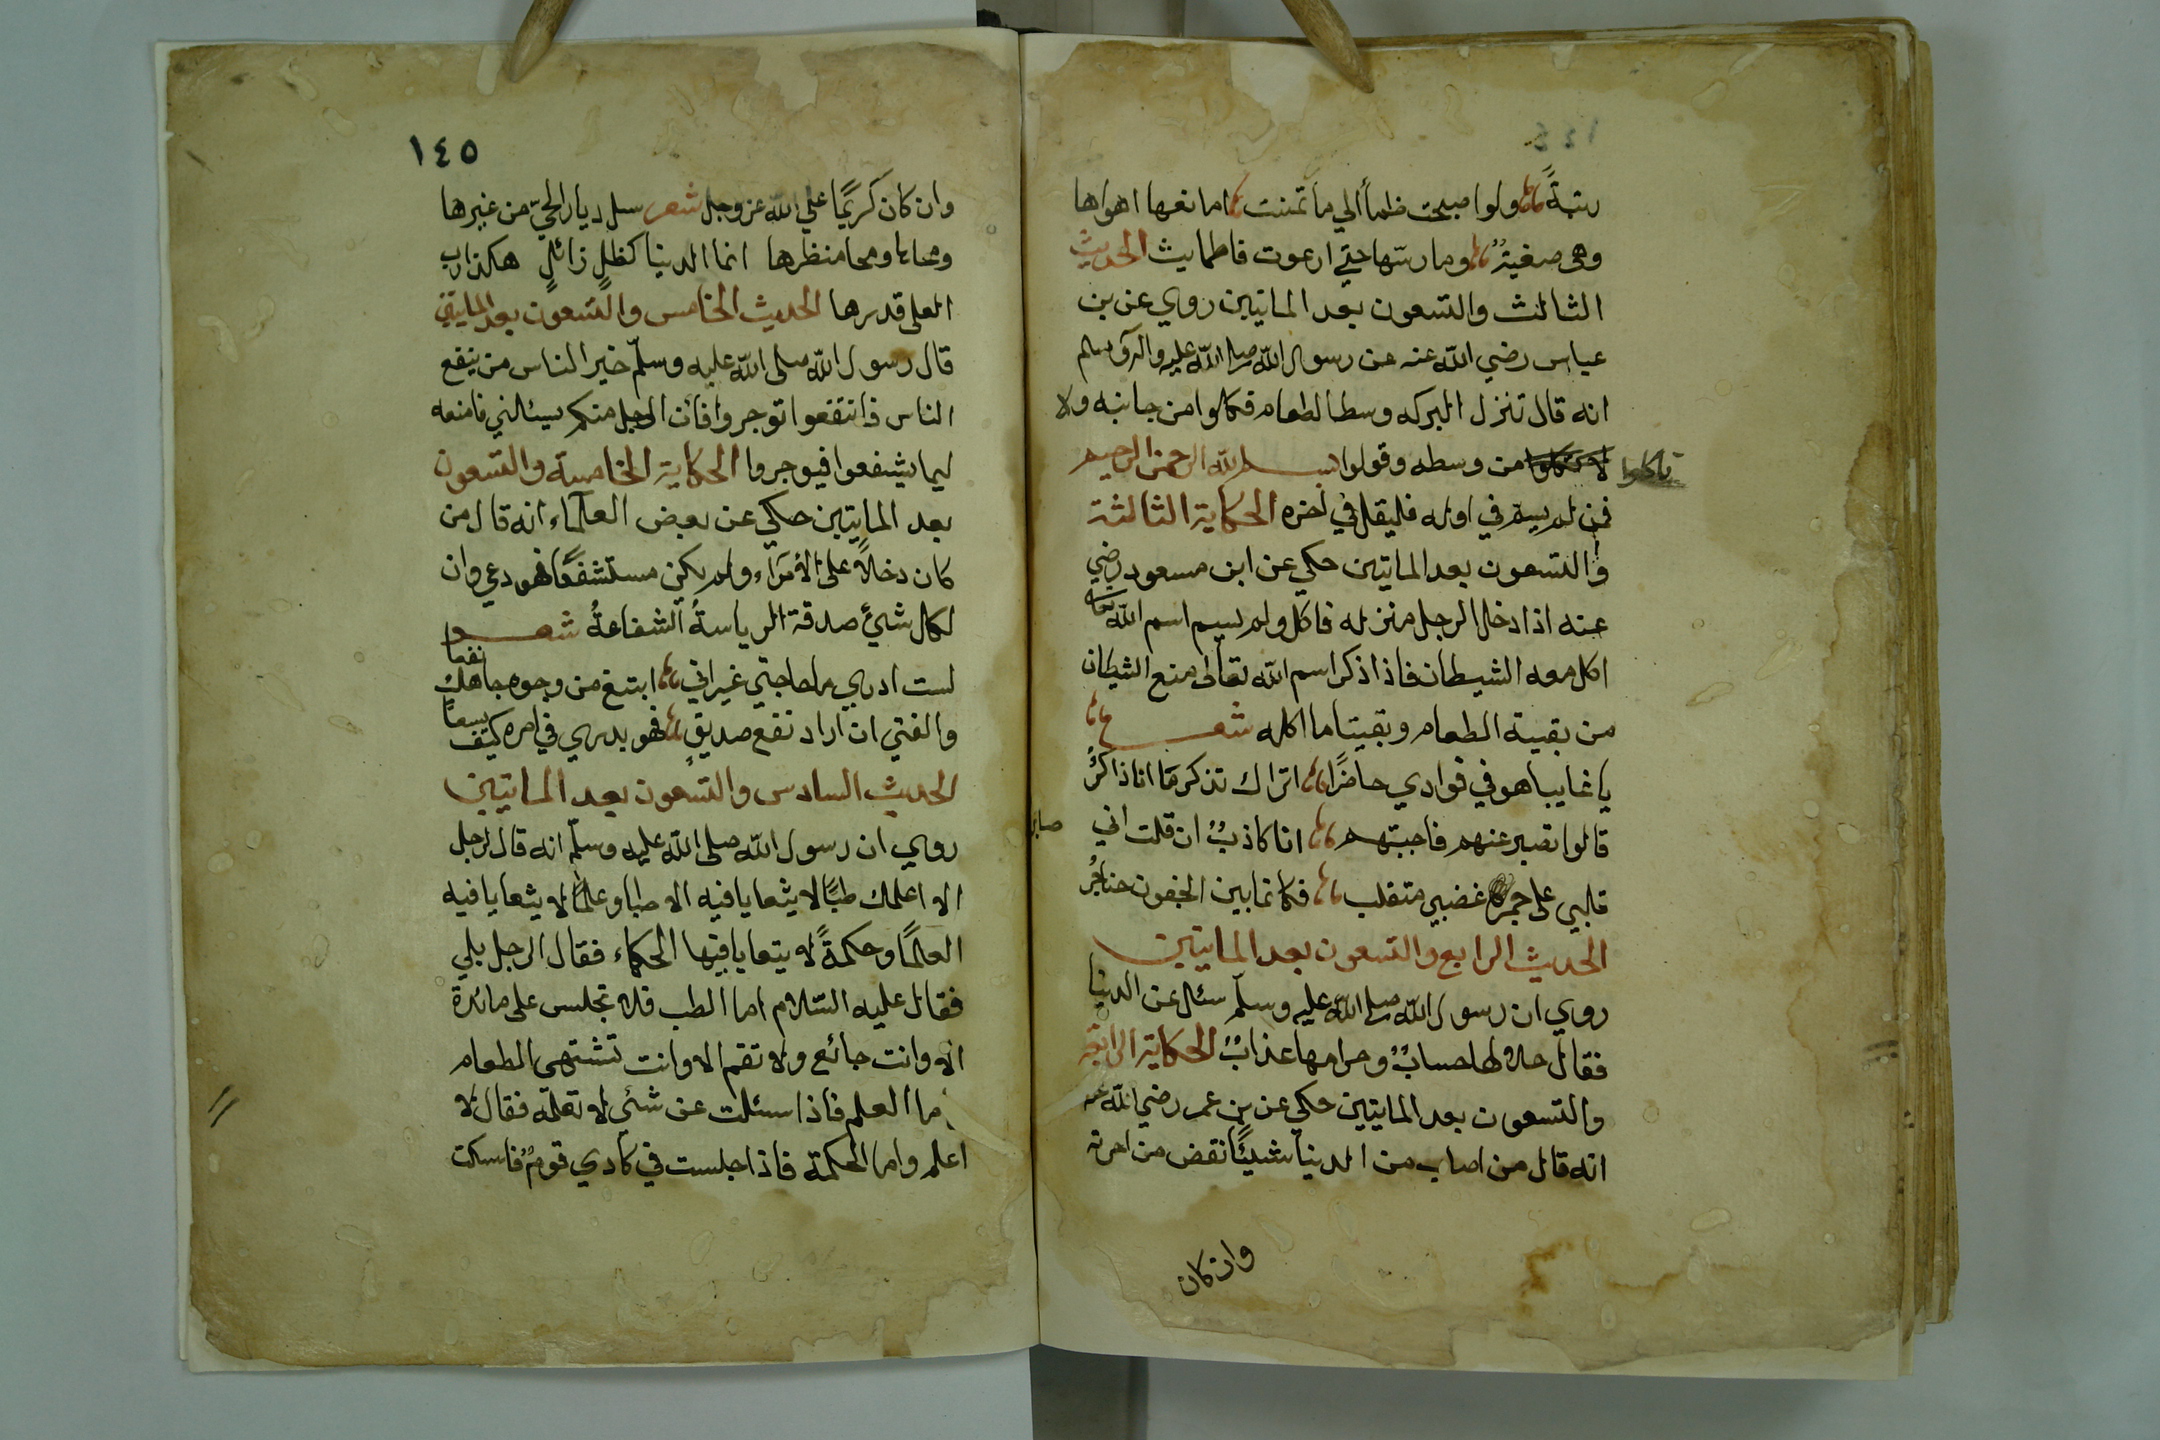 رتبةً ولو اصبحت ظمأ الي ما تمنت اما نعها اهواها
وهي صغيرٌ وما رستها حتي ارعوت فاطمايث الحديث
الثالث والتسعون بعد الماتيين روي عن بن
عباس رضي الله عنه عن رسول الله صلي الله عليه واله وسلم
انه قال تنزل البركه وسط الطعام فكلوا من جانبه ولا
تاكلوا من وسطه وقولوا بسم الله الرحمن الرحيم
فمن لم يسم في اوله فليقل في اخره الحكاية الثالثة
والتسعون بعد الماتيين حكي عن ابن مسعود رضي
عنه اذا دخل الرجل منزله فاكل ولم يسم اسم الله تعا
اكل معه الشيطان فاذا ذكر اسم الله تعالى منع الشيطان
من بقية الطعام وبقيتا ما اكله شعر
يا غايبا هو في فوادي حاضرًا اتراك تذكر ما انا ذاكرُ
قالوا تصبر عنهم فاجبتهم انا كاذبٌ ان قلت اني صابر
قلبي على جمر غضبي متقلب فكانما بين الجفون خناجرُ
الحديث الرابع والتسعون بعد الماتيين
روي ان رسول الله صلي الله عليه وسلم سئل عن الدنيا
فقال حلالها حسابٌ وحرامها عذابٌ الحكاية الرابعة
والتسعون بعد الماتيين حكي عن بن عمر رضي الله عنه
انه قال من اصاب من الدنيا شيئًا نقض من اخرته
وان كان
١٤٥
وان كان كريمًا علي الله عز وجل شعر سل ديار الحيّ من غيرها
ومحاها ومحا منظرها انما الدنيا كظلٍ زائلٍ هكذا رب
العلى قدرها الحديث الخامس والتسعون بعد الماتيين
قال رسول الله صلى الله عليه وسلّم خير الناس من ينفع
الناس فانتفعوا توجروا فان الرجل منكم يسئالني فامنعه
ليما يشفعوا فيوجروا الحكاية الخامسة والتسعون
بعد الماتيين حكي عن بعض العلماء انه قال من
كان دخالًا على الأمرَاء ولم يكن مستشفعًا فهو دعي وان
لكل شيءٍ صدقة الرياسةُ الشفاعةُ شعر
لست ادري ما حاجتي غير اني ابتغ من وجوه جاهك نفعا
والفتي ان اراد نفع صديقٍ فهو يدري في امره كيف يسعا
الحديث السادس والتسعون بعد الماتيين
روي ان رسول الله صلى الله عليه وسلّم انه قال لرجل
الا اعلمك طبًا لا يتعايا فيه الاطبا وعلمًا لا يتعايا فيه
العالمًا وحكمةً لا يتعايا فيها الحكماء فقال الرجل بلي
فقال عليه السّلام اما الطب فلا تجلس على مائدة
الا وانت جائع ولا تقم الا وانت تشتهي الطعام
اما العلم فاذا سئلت عن شئي لا تعلمه فقال لا
اعلم واما الحكمة فاذا جلست في نادي قومٌ فاسكت